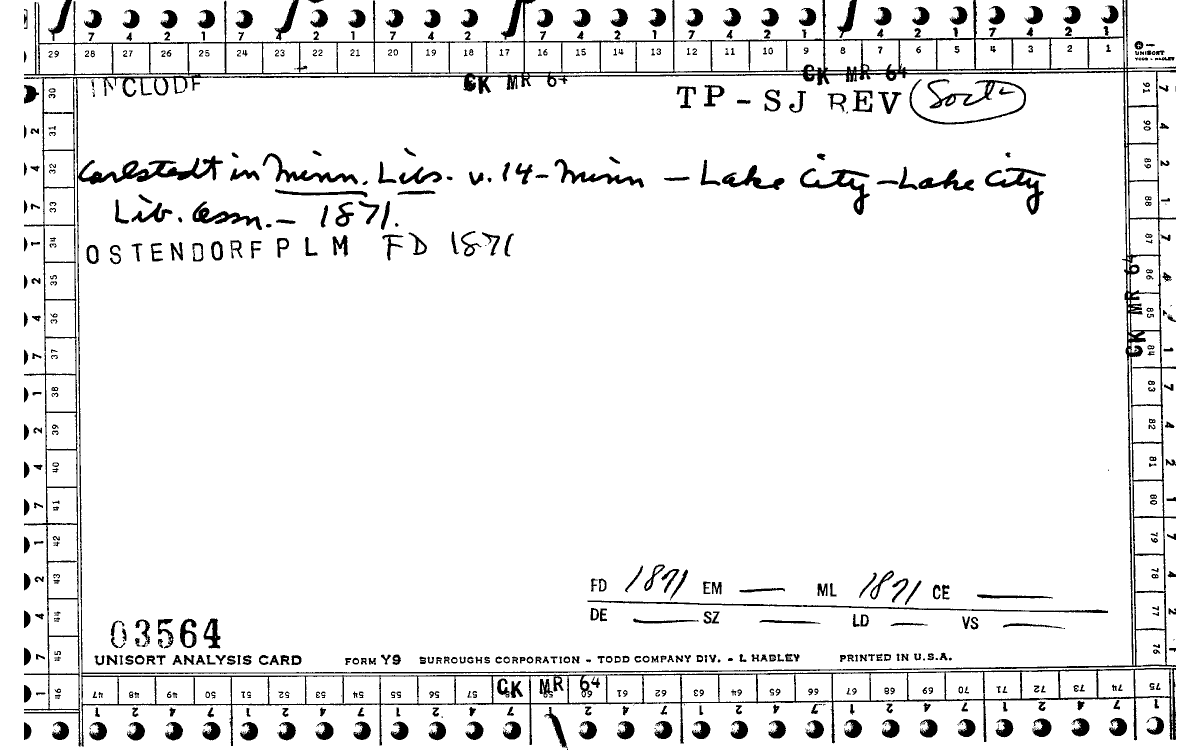 7 4 2 1 7 4 2 1 7 4 2 1 7 4 2 1 7 4 2 1 7 4 2 1 7 4 2 1
29 28 27 26 25 24 23 22 21 20 19 18 17 16 15 14 13 12 11 10 9 8 7 6 5 4 3 2 1
UNISORT
TODD - HADLEY
INCLUDE CK MR 64 CK MR 64
TP-SJ REV
Carlstedt in Minn. Libs. v. 14 - Minn - Lake City - Lake City
Lib. Assn. - 1871.
OSTENDORF PLM FD 1871
CK MR 64
30 31 32 33 34 35 36 37 38 39 40 41 42 43 44 45 46
91 90 89 88 87 86 85 84 83 82 81 80 79 78 77 76 75
FD 1871 EM — ML 1871 CE —
DE — SZ — LD — VS —
03564
UNISORT ANALYSIS CARD FORM Y9 BURROUGHS CORPORATION - TODD COMPANY DIV. - L HADLEY PRINTED IN U.S.A.
CK MR 64
47 48 49 50 51 52 53 54 55 56 57 58 59 60 61 62 63 64 65 66 67 68 69 70 71 72 73 74
1 2 4 7 1 2 4 7 1 2 4 7 1 2 4 7 1 2 4 7 1 2 4 7 1 2 4 7